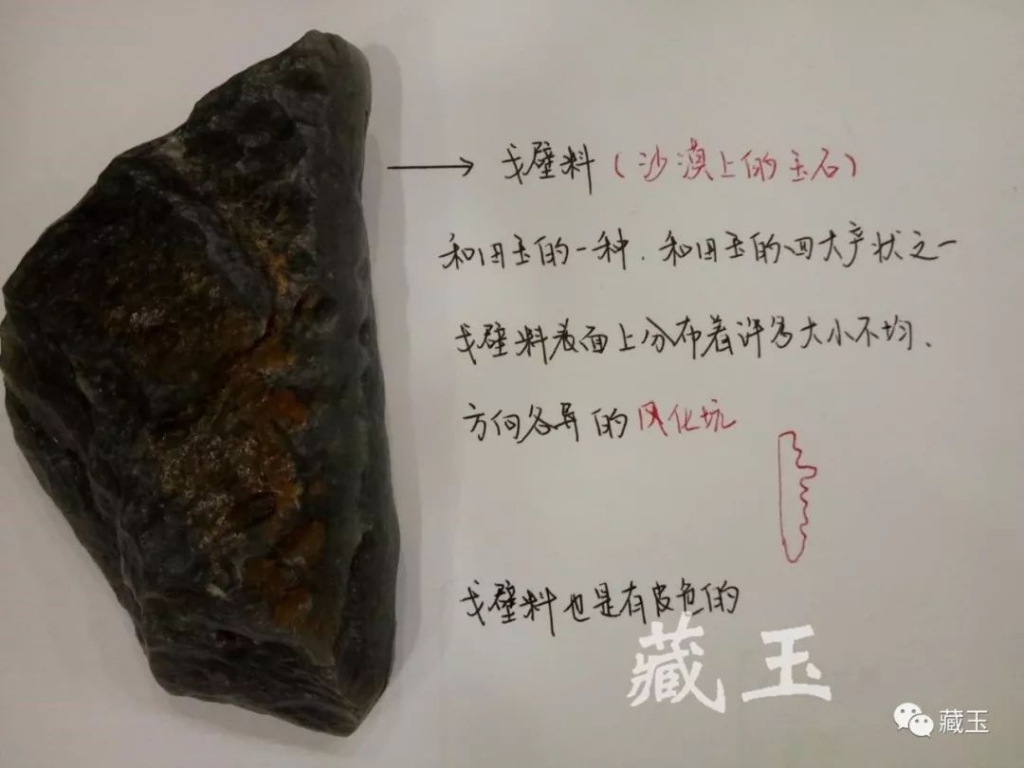 戈壁料(沙漠上的玉石)
和田玉的一种.和田玉的四大产状之一
戈壁料表面上分布着许多大小不均、
方向各异的风化坑
戈壁料也是有皮色的
藏玉
藏玉